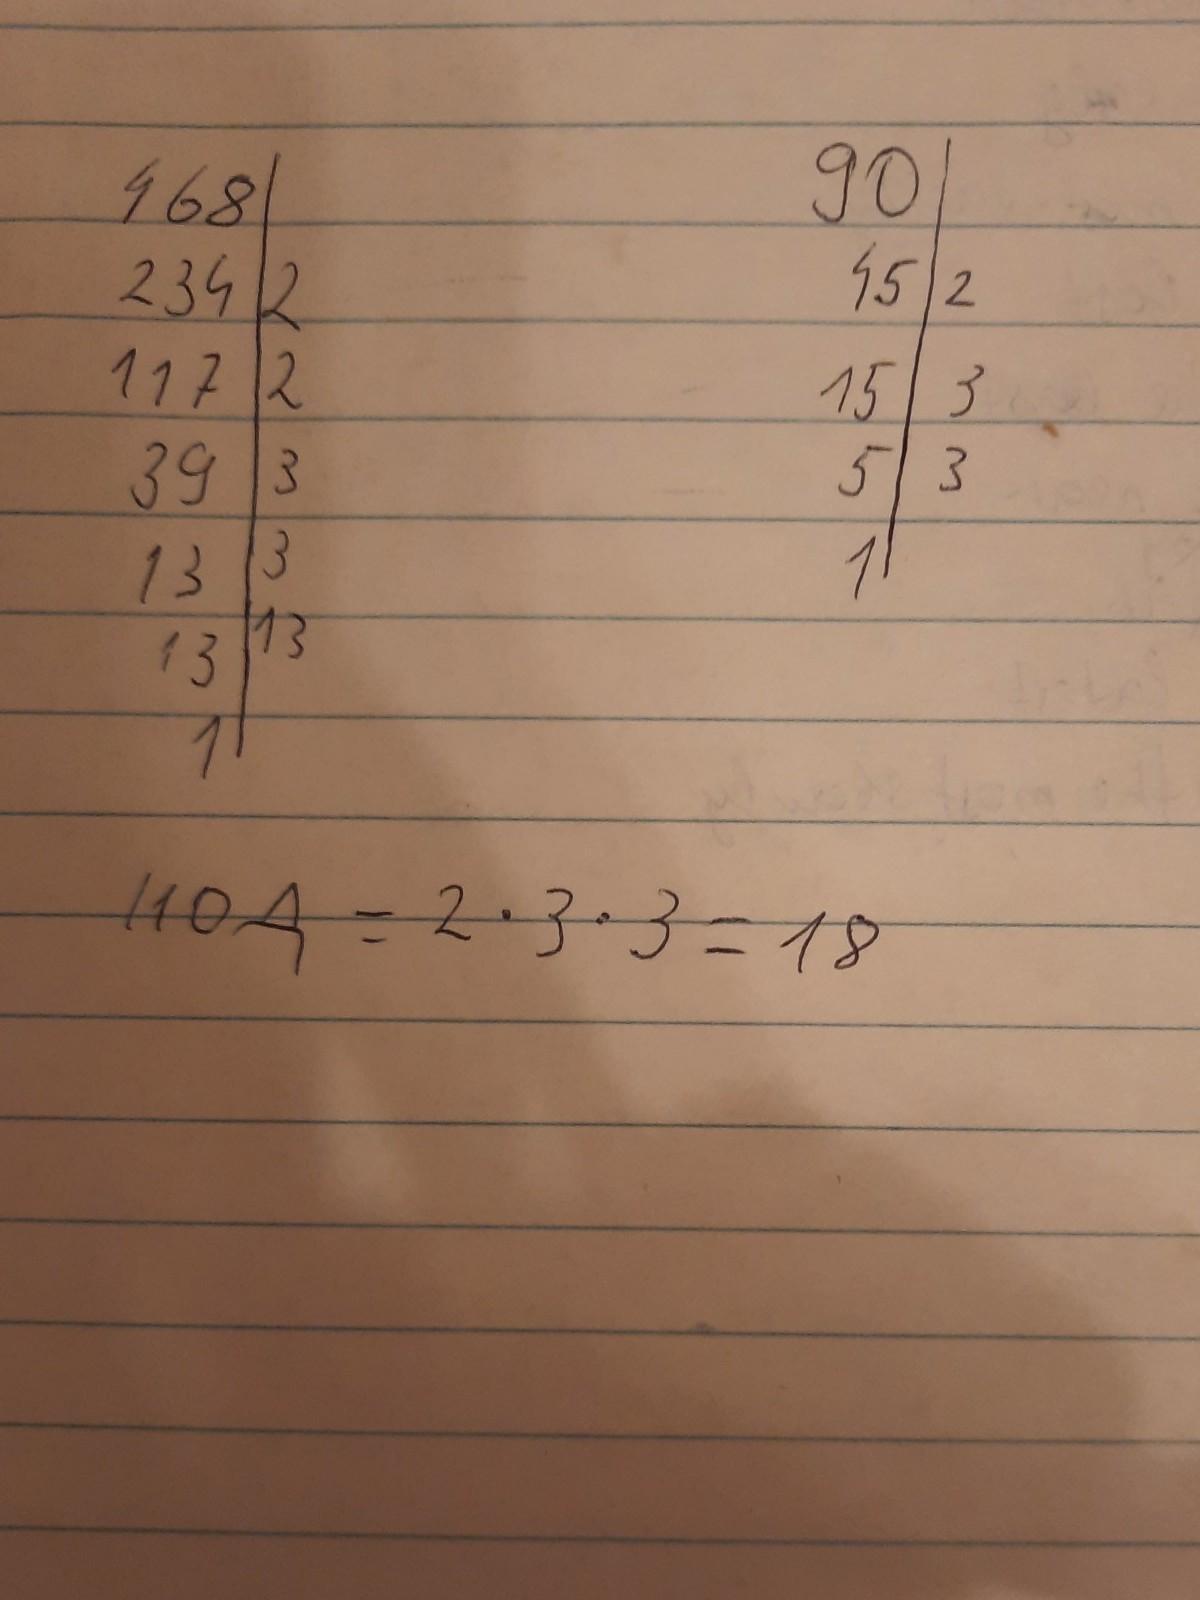 468
234 2
117 2
39 3
13 3
13 13
1
90
45 2
15 3
5 3
1
НОД = 2 · 3 · 3 = 18